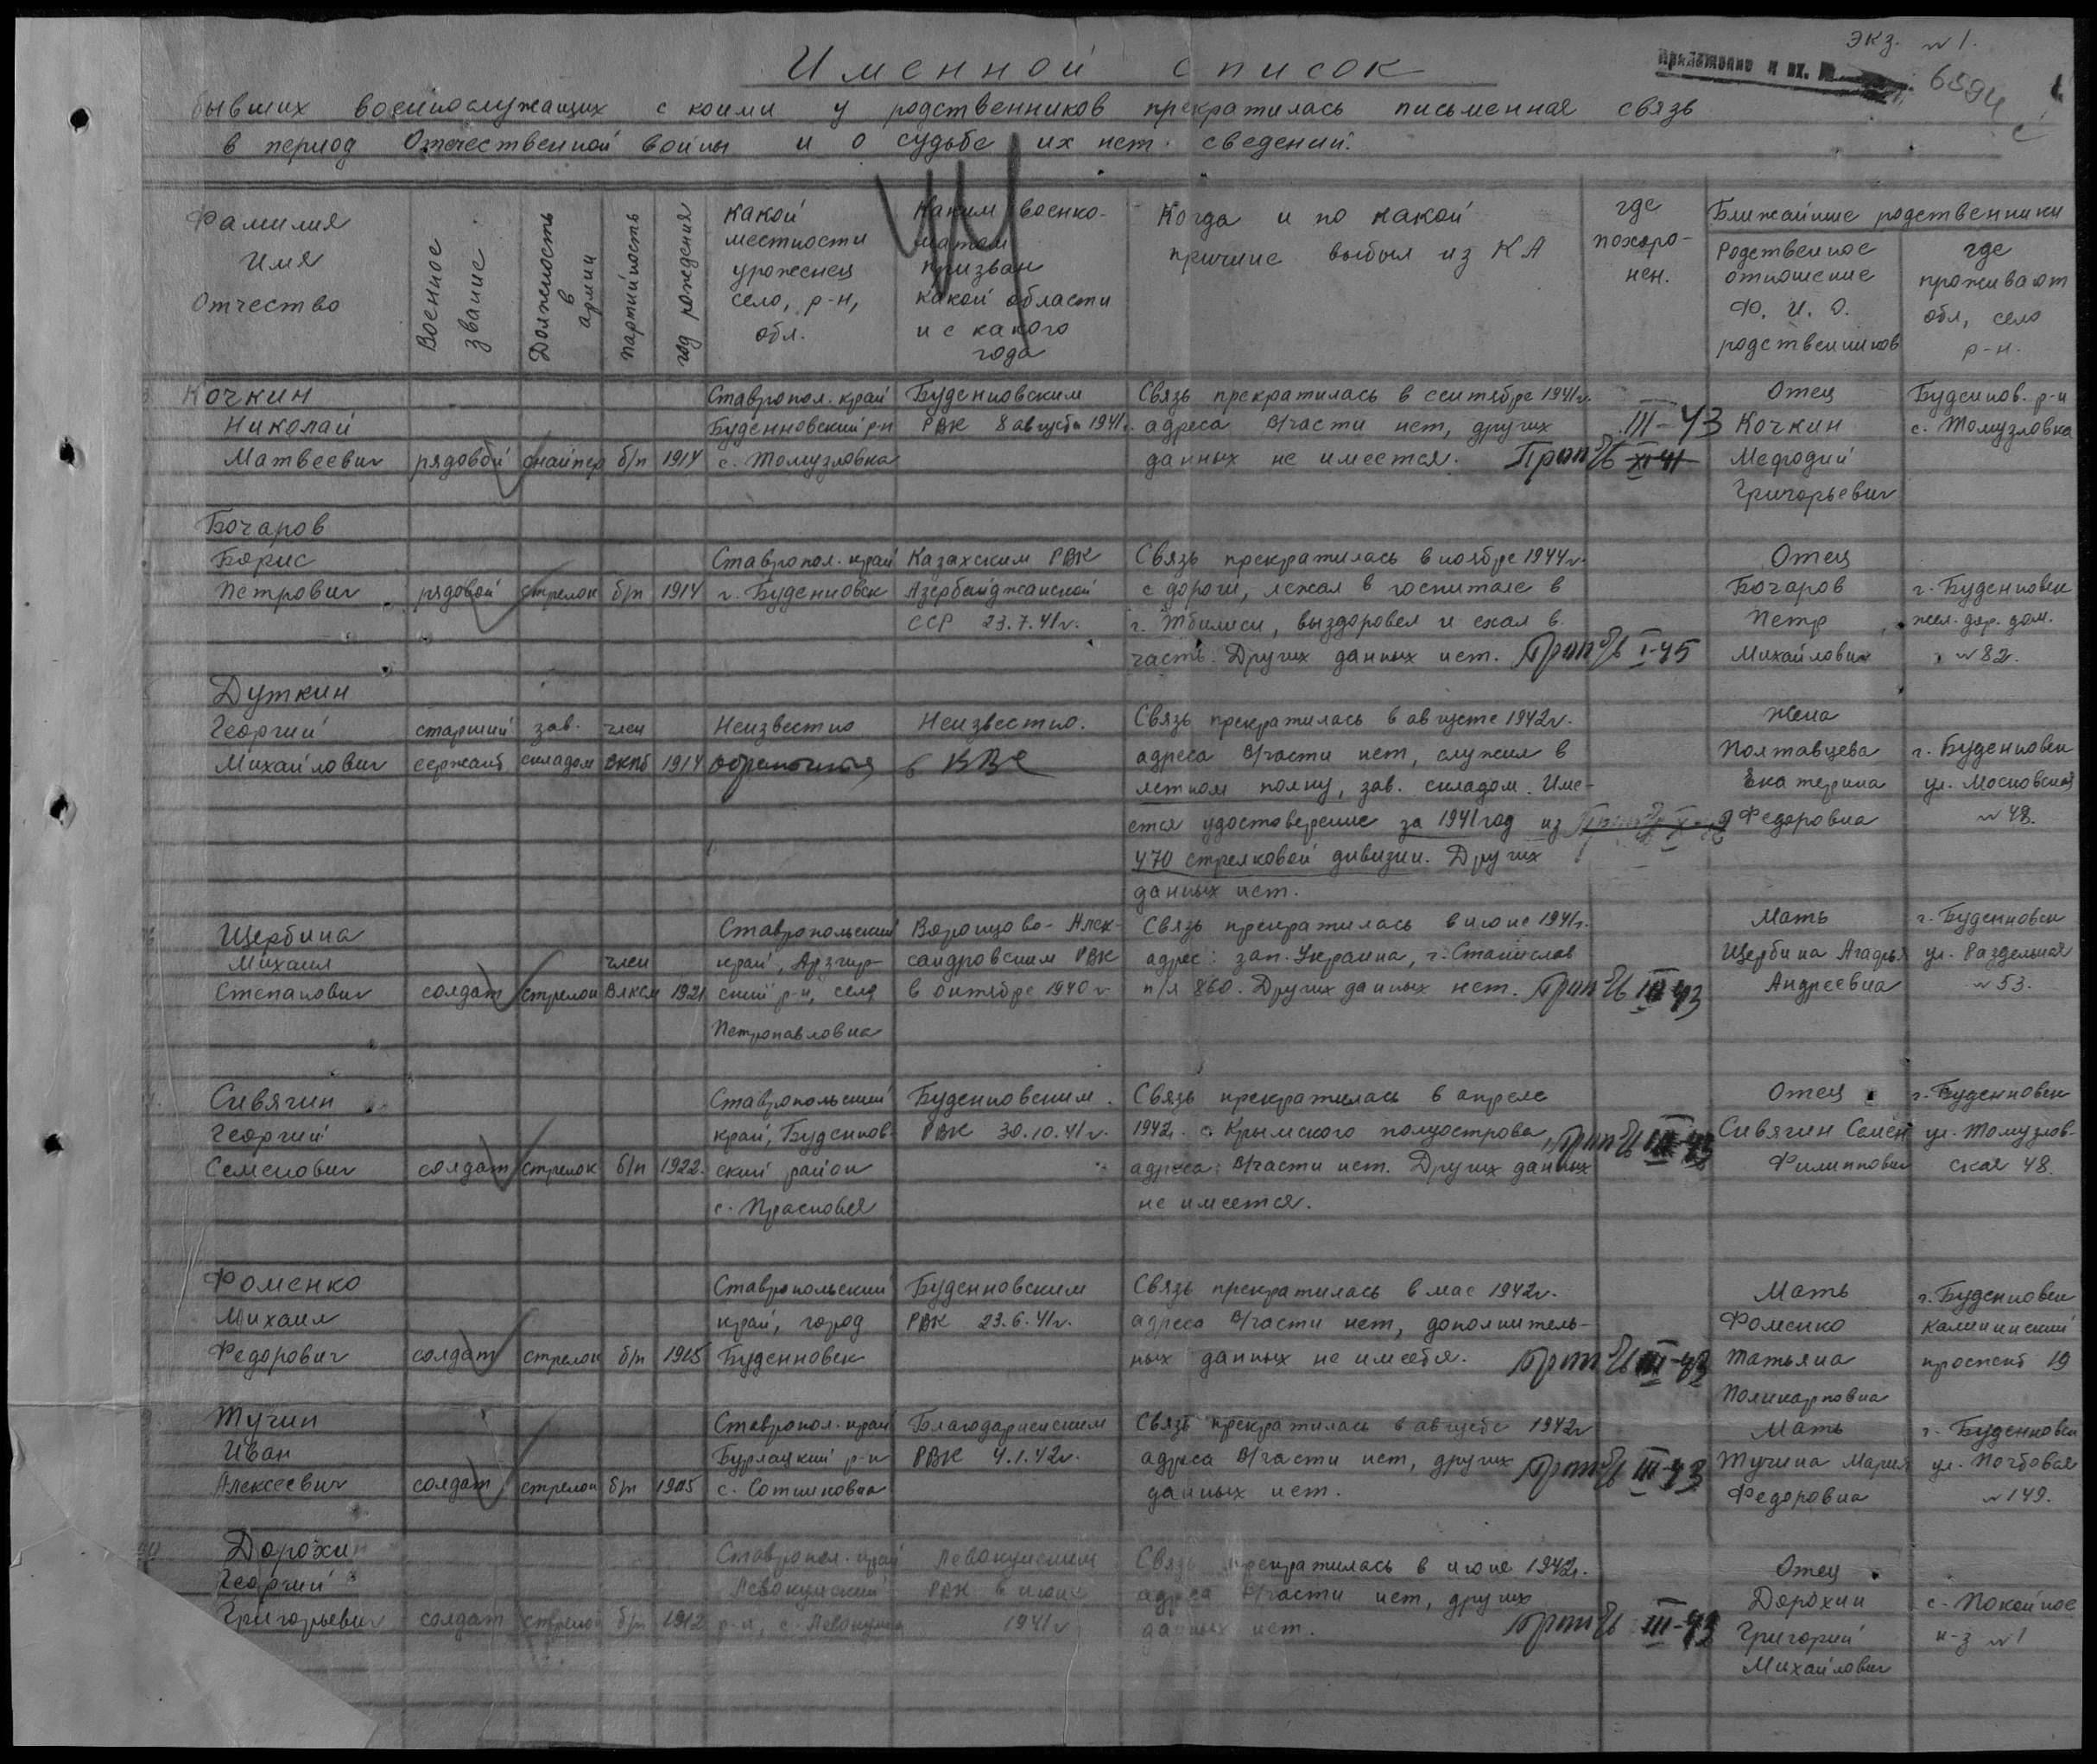 экз. №1.
Приложение к вх. №
6594
Именной список
бывших военнослужащих с коими у родственников прекратилась письменная связь
в период Отечественной войны и о судьбе их нет сведений.
Фамилия
Имя
Отчество
Военное
звание
Должность
в
армии
Партийность
год рождения
какой
местности
уроженец
село, р-н,
обл.
Каким военко-
матом
призван
какой области
и с какого
года
Когда и по какой
причине выбыл из КА
где
похоро-
нен.
Ближайшие родственники
Родственное
отношение
Ф. И. О.
родственников
где
проживают
обл, село
р-н.
Кочкин
Николай
Матвеевич
рядовой
снайпер
б/п
1914
Ставропол. край
Буденновский р-н
с. Томузловка
Буденновским
РВК 8 августа 1941г.
Связь прекратилась в сентябре 1941г.
адреса в/части нет, других
данных не имеется.
Проп б/в XI-41
III-43
Отец
Кочкин
Мефодий
Григорьевич
Буденнов. р-н
с. Томузловка
Бочаров
Борис
Петрович
рядовой
стрелок
б/п
1914
Ставропол. край
г. Буденновск
Казахским РВК
Азербайджанской
ССР 23.7.41г.
Связь прекратилась в ноябре 1944г.
с дороги, лежал в госпитале в
г. Тбилиси, выздоровел и ехал в
часть. Других данных нет.
Проп б/в I-45
Отец
Бочаров
Петр
Михайлович
г. Буденновск
жел. дор. дом.
№82.
Дуткин
Георгий
Михайлович
старший
сержант
зав.
складом
член
ВКПб
1914
Неизвестно
Неизвестно.
в ВВС
Связь прекратилась в августе 1942г.
адреса в/части нет, служил в
летном полку, зав. складом. Име-
ется удостоверение за 1941 год из
470 стрелковой дивизии. Других
данных нет.
Жена
Полтавцева
Екатерина
Федоровна
г. Буденновск
ул. Московская
№48.
Щербина
Михаил
Степанович
солдат
стрелок
член
ВЛКСМ
1921
Ставропольский
край, Арзгир-
ский р-н, село
Петропавловка
Воронцово-Алек-
сандровским РВК
в октябре 1940г
Связь прекратилась в июне 1941г.
адрес: зап. Украина, г. Станислав
п/я 860. Других данных нет.
Проп б/в III-43
Мать
Щербина Агафья
Андреевна
г. Буденновск
ул. Раздельная
№53.
Сивягин
Георгий
Семенович
солдат
стрелок
б/п
1922.
Ставропольский
край, Буденнов-
ский район
с. Прасковея
Буденновским
РВК 30.10.41г.
Связь прекратилась в апреле
1942г. с Крымского полуострова,
адреса в/части нет. Других данных
не имеется.
Проп б/в III-43
Отец
Сивягин Семен
Филиппович
г. Буденновск
ул. Томузлов-
ская 48.
Фоменко
Михаил
Федорович
солдат
стрелок
б/п
1915
Ставропольский
край, город
Буденновск
Буденновским
РВК 23.6.41г.
Связь прекратилась в мае 1942г.
адреса в/части нет, дополнитель-
ных данных не имеется.
Проп б/в III-43
Мать
Фоменко
Татьяна
Поликарповна
г. Буденновск
Калининский
проспект 19
Тучин
Иван
Алексеевич
солдат
стрелок
б/п
1905
Ставропол. край
Бурлацкий р-н
с. Сотниковка
Благодарненским
РВК 4.1.42г.
Связь прекратилась в августе 1942г
адреса в/части нет, других
данных нет.
Проп б/в III-43
Мать
Тучина Мария
Федоровна
г. Буденновск
ул. Почтовая
№149.
Дорохин
Георгий
Григорьевич
солдат
стрелок
б/п
1912
Ставропол. край
Левокумский
р-н, с. Левокумка
Левокумским
РВК в июне
1941г
Связь прекратилась в июне 1942г.
адреса в/части нет, других
данных нет.
Проп б/в III-43
Отец
Дорохин
Григорий
Михайлович
с. Покойное
к-з №1